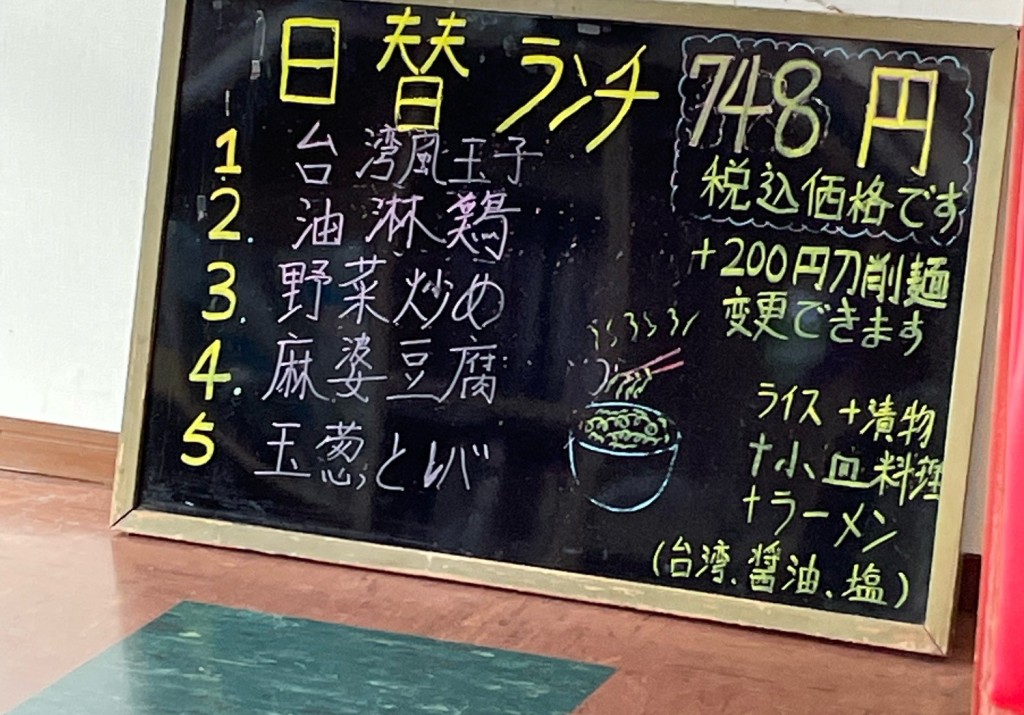 日替ランチ
748円
税込価格です
1 台湾風玉子
2. 油淋鶏
3. 野菜炒め
4. 麻婆豆腐
5 玉葱とレバ
+200円刀削麺
変更できます
ライス+漬物
+小皿料理
+ラーメン
(台湾、醤油、塩)